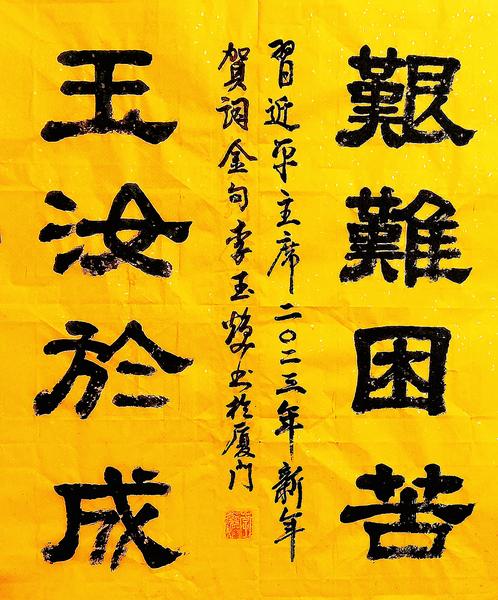 艱難困苦
玉汝於成
習近平主席二〇二三年新年
賀詞金句李玉书於厦门